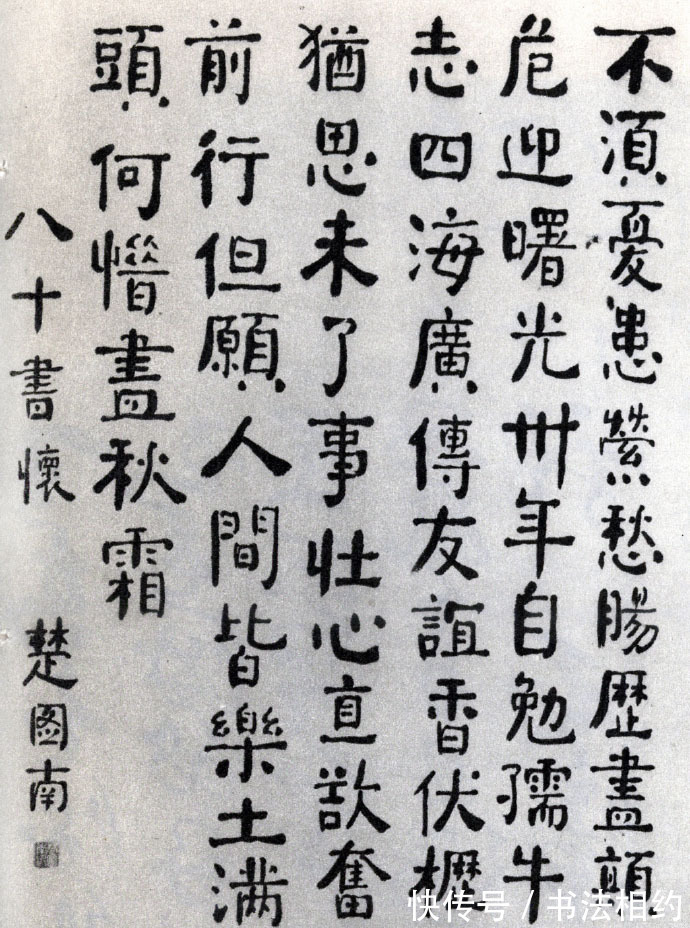 不須憂患縈愁腸歷盡顛
危迎曙光卅年自勉孺牛
志四海廣傳友誼香伏櫪
猶思未了事壯心直欲奮
前行但願人間皆樂土满
頭何惜盡秋霜
八十書懷 楚图南
快传号 / 书法相约